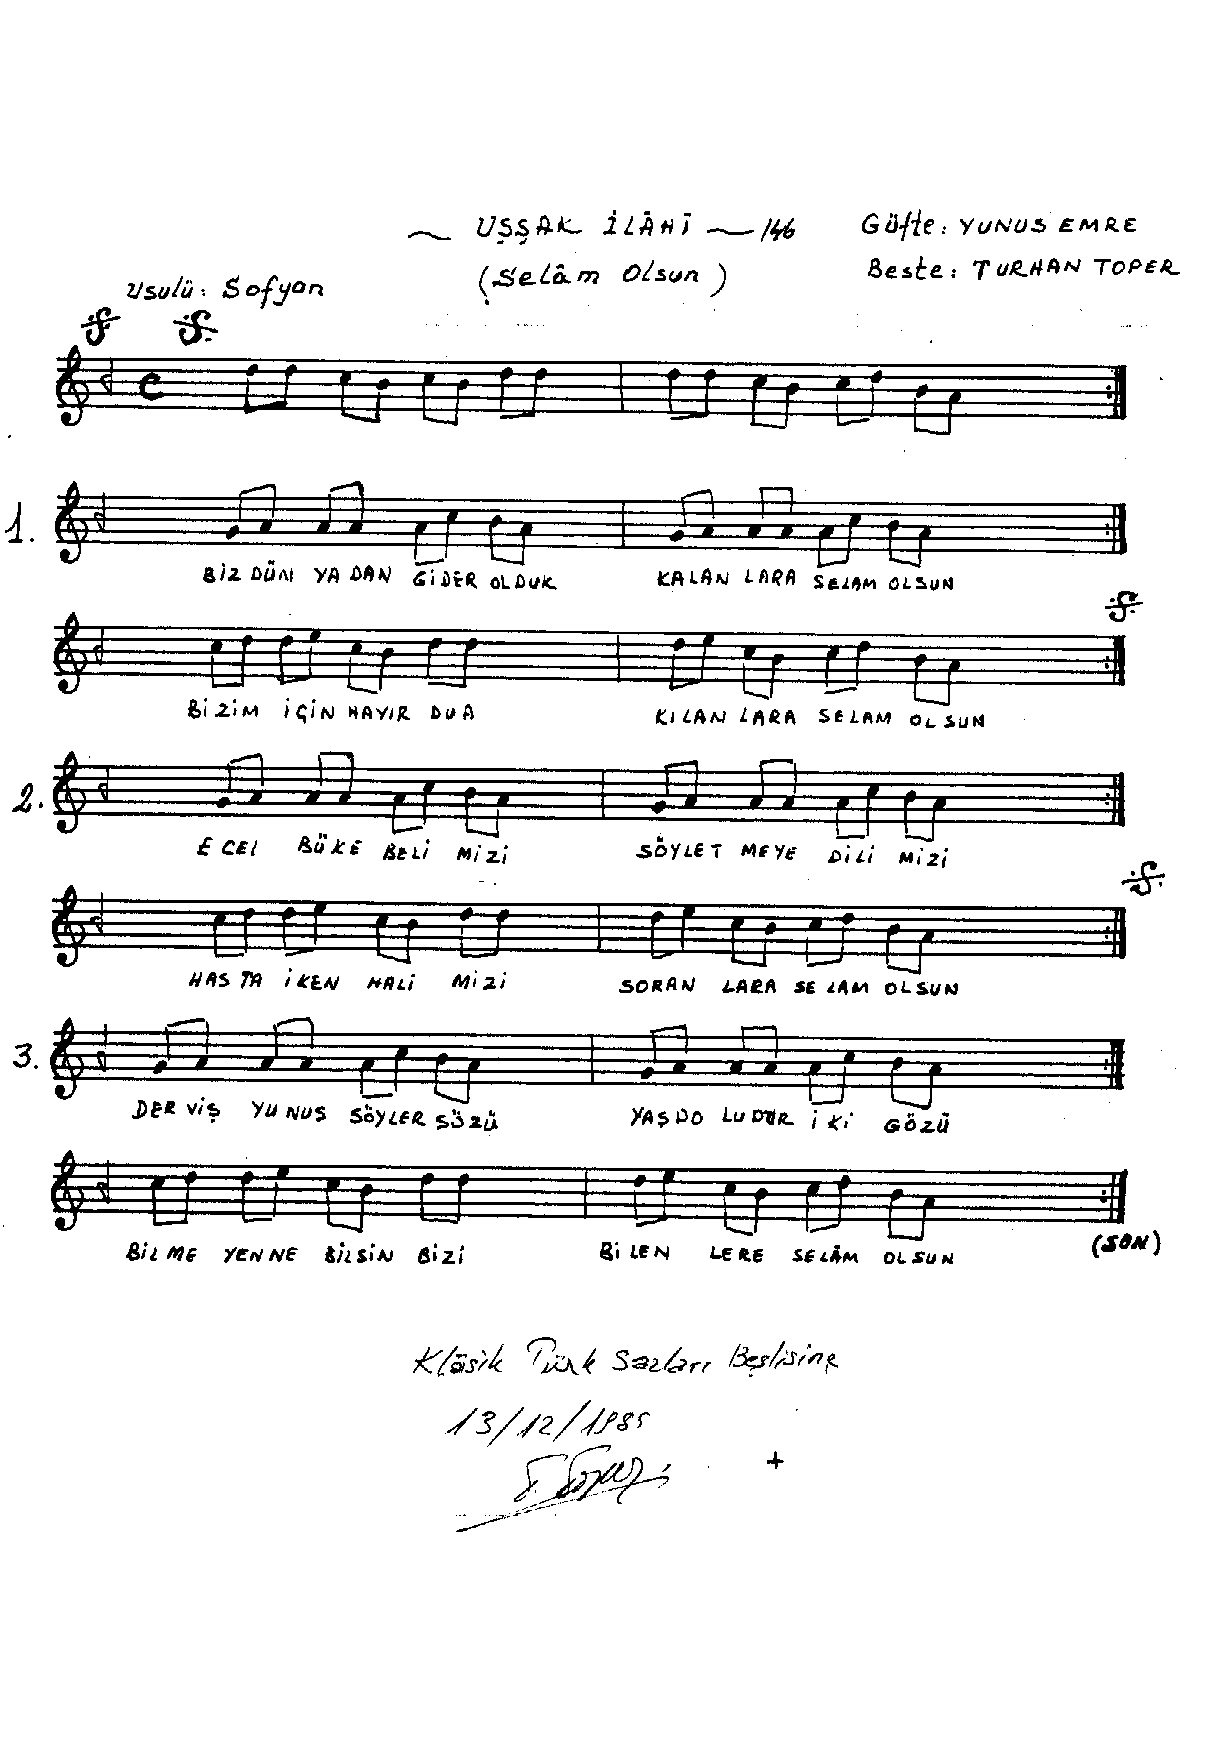 ~ UŞŞAK İLÂHİ ~ 146
Güfte: YUNUS EMRE
(Selâm Olsun)
Beste: TURHAN TOPER
Usulü: Sofyan
1.
BİZ DÜN YA DAN GİDER OLDUK KALAN LARA SELAM OLSUN
BİZİM İÇİN HAYIR DUA KILAN LARA SELAM OLSUN
2.
ECEL BÜKE BELİ MİZİ SÖYLET MEYE DİLİ MİZİ
HAS TA İKEN HALİ MİZİ SORAN LARA SE LAM OLSUN
3.
DER VİŞ YU NUS SÖYLER SÖZÜ YAŞ DO LU DUR İ Kİ GÖZÜ
BİL ME YEN NE BİLSİN BİZİ Bİ LEN LERE SELÂM OLSUN
(SON)
Klâsik Türk Sazları Beşlisine
13/12/1985